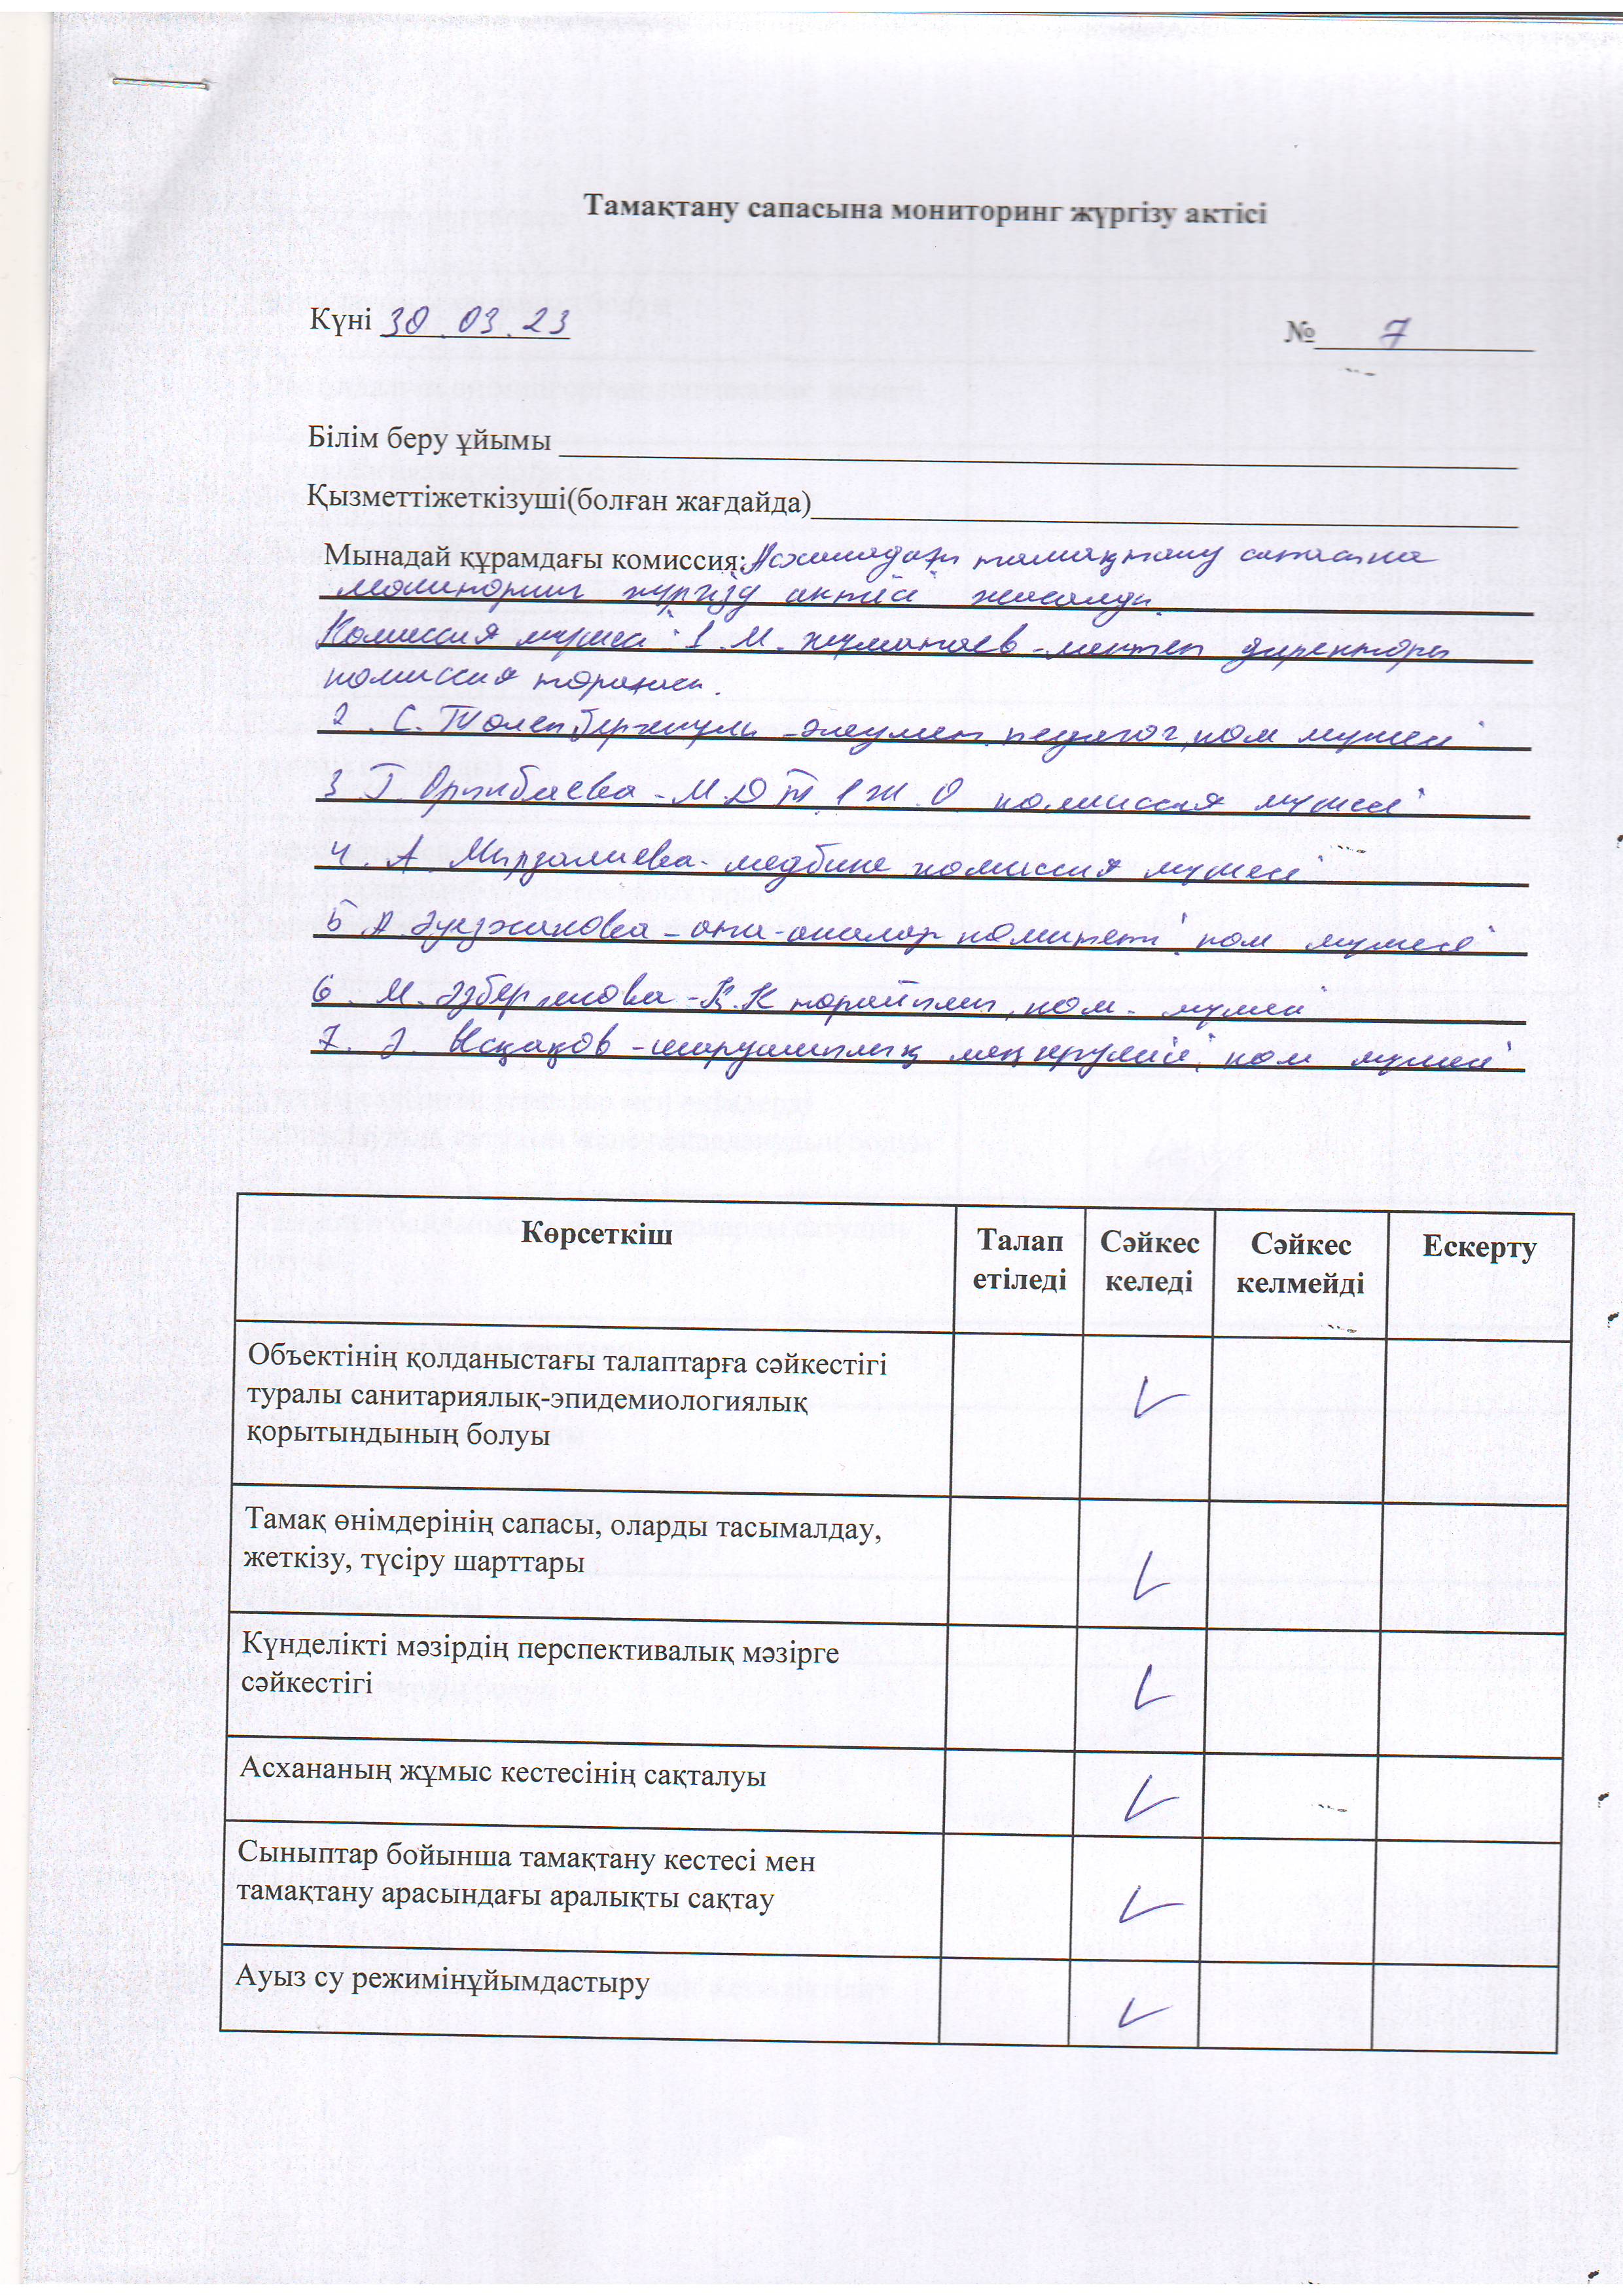 Тамақтану сапасына мониторинг жүргізу актісі
Күні 30.03.23
№ 7
Білім беру ұйымы
Қызметтіжеткізуші(болған жағдайда)
Мынадай құрамдағы комиссия: Асханадағы тамақтану сапасына
мониторинг жүргізу актісі жасалды.
Комиссия мүшесі: 1. М. Жуматаев - мектеп директоры
комиссия төрағасы.
2. С. Төлепбергенұлы - әлеумет. педагог, ком мүшесі
3 Г. Орынбаева - М.Д.Т.І.Ж.О комиссия мүшесі
4. А. Мырзалиева - медбике комиссия мүшесі
5 А. Әуезжанова - ата-аналар комитеті, ком мүшесі
6. М. Әзбергенова - К.К төрайымы, ком. мүшесі
7. Ә. Ысқақов - шаруашылық меңгерушісі, ком мүшесі
Көрсеткіш
Талап етіледі
Сәйкес келеді
Сәйкес келмейді
Ескерту
Объектінің қолданыстағы талаптарға сәйкестігі
туралы санитариялық-эпидемиологиялық
қорытындының болуы
Тамақ өнімдерінің сапасы, оларды тасымалдау,
жеткізу, түсіру шарттары
Күнделікті мәзірдің перспективалық мәзірге
сәйкестігі
Асхананың жұмыс кестесінің сақталуы
Сыныптар бойынша тамақтану кестесі мен
тамақтану арасындағы аралықты сақтау
Ауыз су режимінұйымдастыру